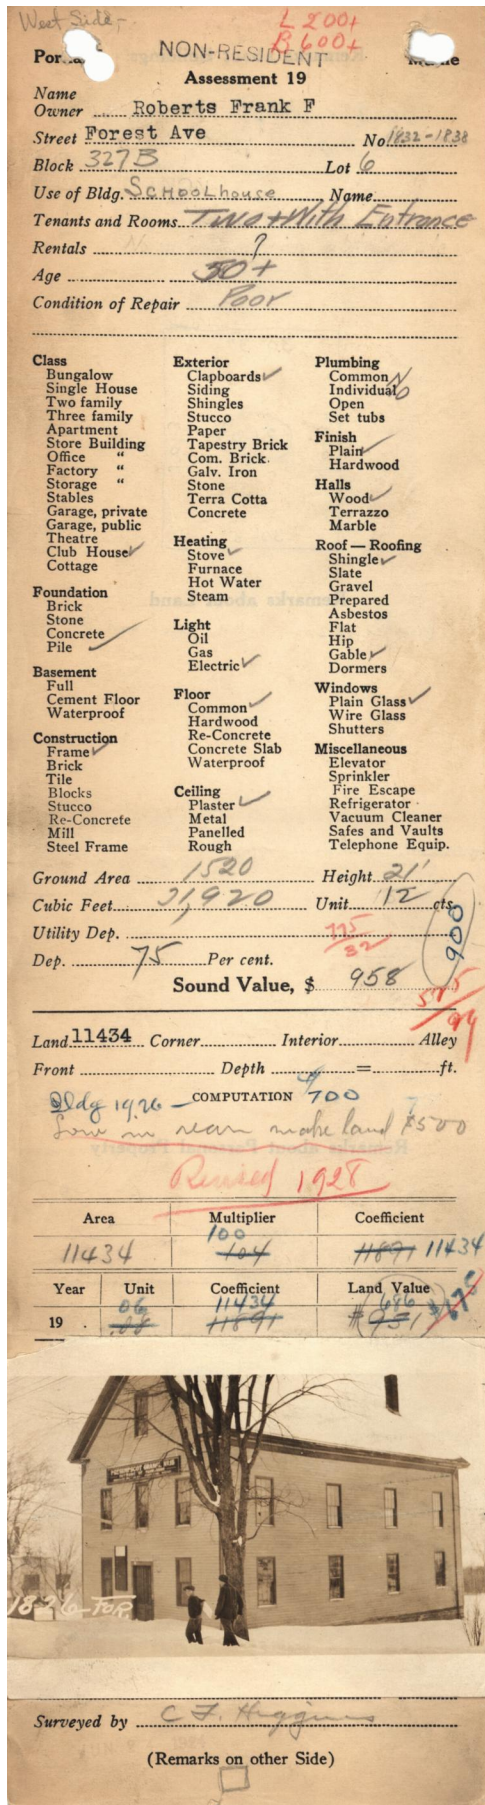 West Side,-
L 200+
B 600+
NON-RESIDENT
Assessment 19
Name
Owner Roberts Frank F
Street Forest Ave No 1832-1838
Block 327B Lot 6
Use of Bldg. Schoolhouse Name
Tenants and Rooms Two + With Entrance
Rentals ?
Age 50+
Condition of Repair Poor
Class
Bungalow
Single House
Two family
Three family
Apartment
Store Building
Office "
Factory "
Storage "
Stables
Garage, private
Garage, public
Theatre
Club House ✓
Cottage
Foundation
Brick
Stone
Concrete
Pile ✓
Basement
Full
Cement Floor
Waterproof
Construction
Frame ✓
Brick
Tile
Blocks
Stucco
Re-Concrete
Mill
Steel Frame
Exterior
Clapboards ✓
Siding
Shingles
Stucco
Paper
Tapestry Brick
Com. Brick.
Galv. Iron
Stone
Terra Cotta
Concrete
Heating
Stove ✓
Furnace
Hot Water
Steam
Light
Oil
Gas
Electric ✓
Floor
Common ✓
Hardwood
Re-Concrete
Concrete Slab
Waterproof
Ceiling
Plaster ✓
Metal
Panelled
Rough
Plumbing
Common
Individual No
Open
Set tubs
Finish
Plain ✓
Hardwood
Halls
Wood ✓
Terrazzo
Marble
Roof — Roofing
Shingle ✓
Slate
Gravel
Prepared
Asbestos
Flat
Hip
Gable ✓
Dormers
Windows
Plain Glass ✓
Wire Glass
Shutters
Miscellaneous
Elevator
Sprinkler
Fire Escape
Refrigerator
Vacuum Cleaner
Safes and Vaults
Telephone Equip.
Ground Area 1520 Height 21'
Cubic Feet 31,920 Unit 12 cts.
Utility Dep.
900
Dep. 75 Per cent.
Sound Value, $ 958
Land 11434 Corner Interior Alley
Front Depth = ft.
Bldg 1926 - COMPUTATION 700
Low in rear make land $500
Revised 1928
Area Multiplier Coefficient
100
11434 104 11891 11434
Year Unit Coefficient Land Value
06 11434 686
19 . .08 11891 $951
1826 FOR.
Surveyed by C F. Higgins
(Remarks on other Side)